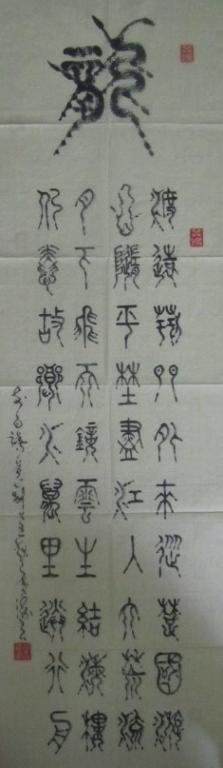 龍
渡遠荊門外來從楚國遊
山隨平埜盡江入大荒流
月下飛天鏡雲生結海樓
仍憐故鄉水萬里送行舟
李白詩